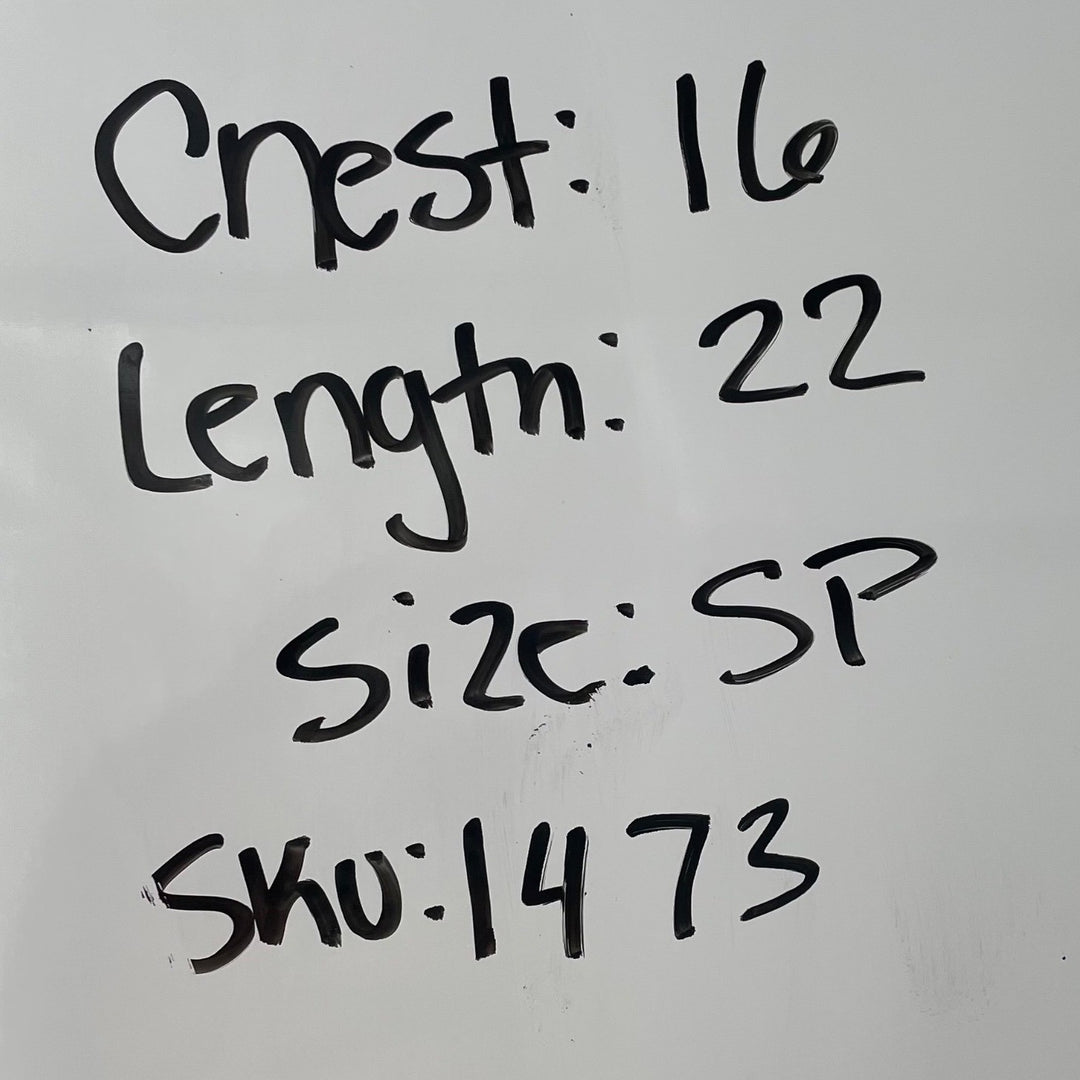 Chest: 16
Length: 22
Size: SP
SKU: 1473